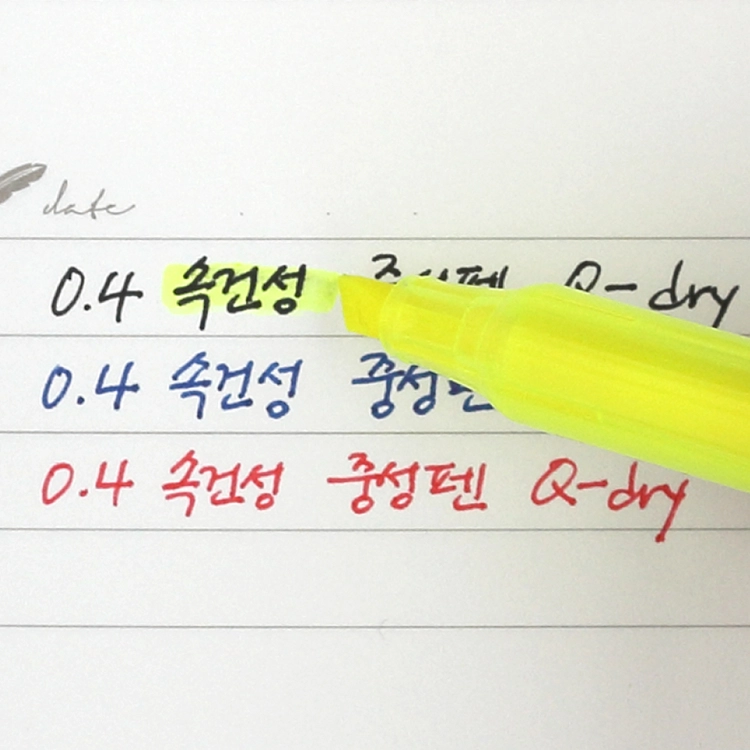 date
0.4 속건성 중성펜 Q-dry
0.4 속건성 중성펜
0.4 속건성 중성펜 Q-dry